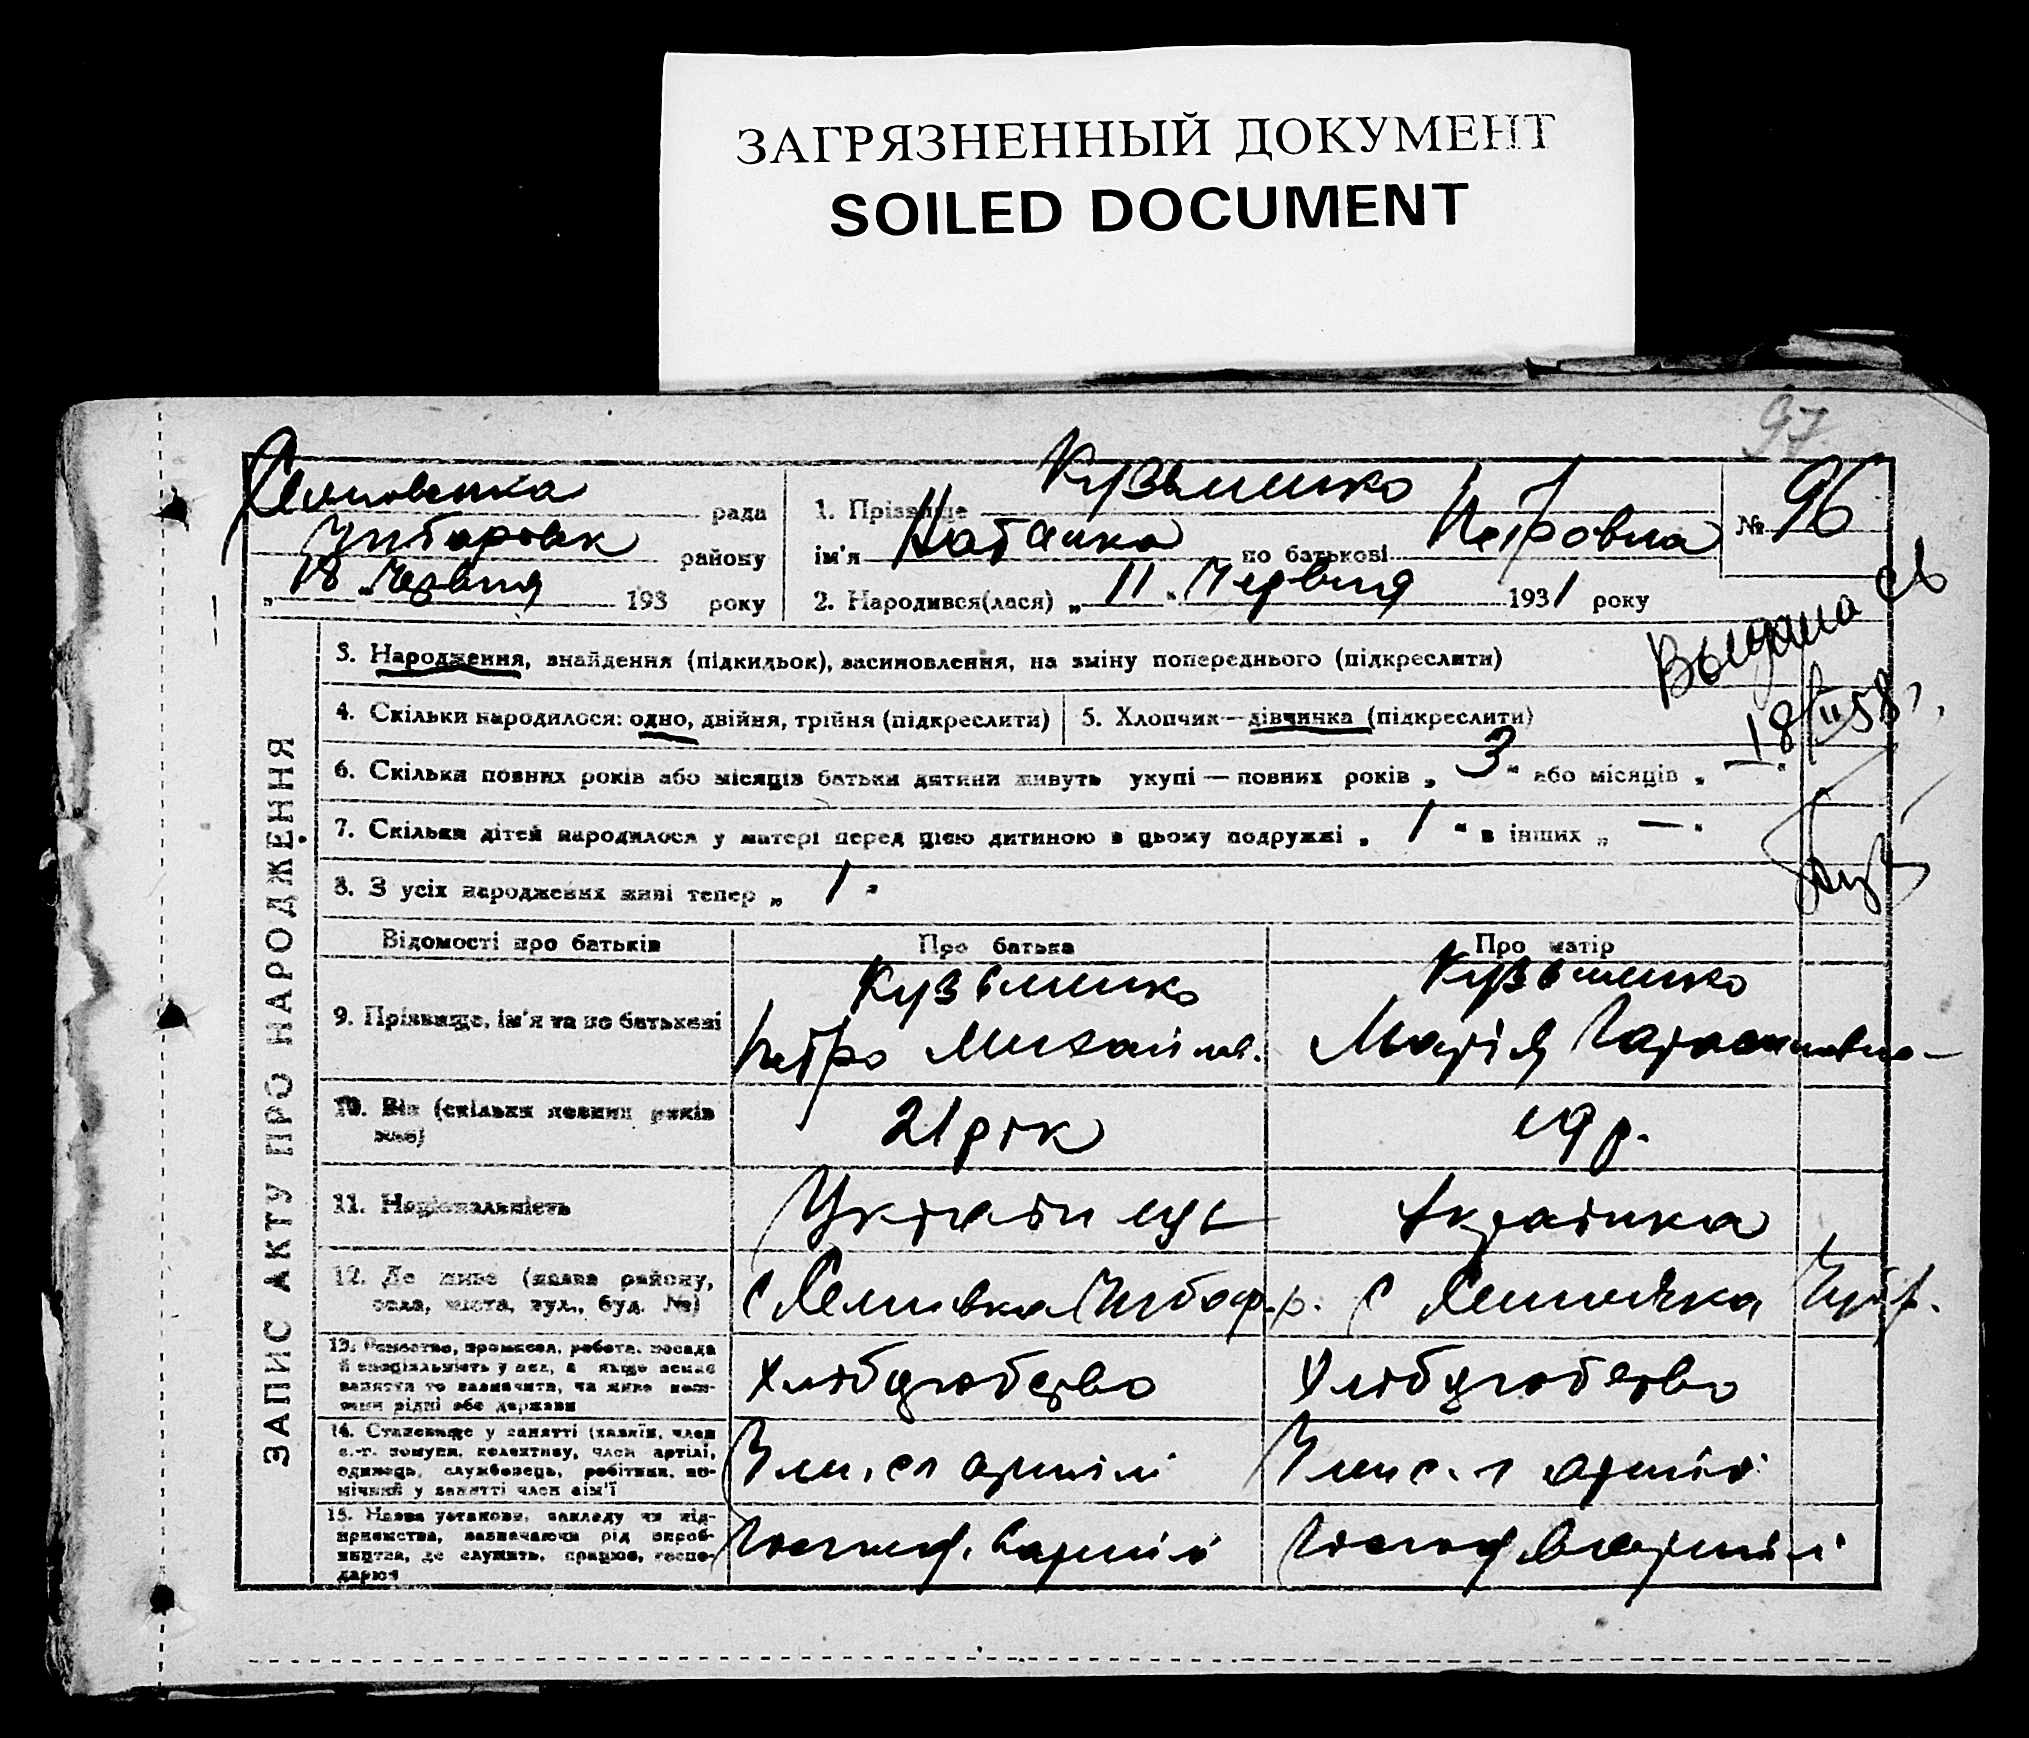 ЗАГРЯЗНЕННЫЙ ДОКУМЕНТ
SOILED DOCUMENT
97
рада
району
„18 „ Червня 193 року
1. Прізвище Кузьменко
ім'я Наталка по батькові Петровна
№ 96
2. Народився(лася) „ 11 " Червня 1931 року
ЗАПИС АКТУ ПРО НАРОДЖЕННЯ
3. Народження, знайдення (підкидьок), засиновлення, на зміну попереднього (підкреслити)
Выдано св
18/II 58 г.
4. Скільки народилося: одно, двійня, трійня (підкреслити)
5. Хлопчик—дівчинка (підкреслити)
6. Скільки повних років або місяців батьки дитини живуть укупі — повних років „ 3 " або місяців „ — "
7. Скільки дітей народилося у матері перед цією дитиною в цьому подружжі „ 1 " в інших „ — "
8. З усіх народжених живі тепер „ 1 "
Відомості про батьків
Про батька
Про матір
9. Прізвище, ім'я та по батькові
Кузьменко
Петро Михайлов.
Кузьменко
Марія
10. Вік (скільки повних років
має)
21 рік
19 р.
11. Національність
Українець
Українка
12. Де живе (назва району,
села, міста, вул., буд. №)
13. Ремество, промисел, робота, посада
й спеціальність у нед, а якщо немає
заняття то зазначити, чи живе кош-
том рідні або держави
Хліборобство
Хліборобство
14. Становище у занятті (хазяїн, член
с.-г. комуни, колективу, член артілі,
одинець, службовець, робітник, по-
мічний у занятті член сім'ї
Член с.г артілі
Член с.г артілі
15. Назва установи, закладу чи під-
приємства, зазначаючи рід вироб-
ництва, де служить, працює, госпо-
дарює
Господ. в артілі
Господ в артілі